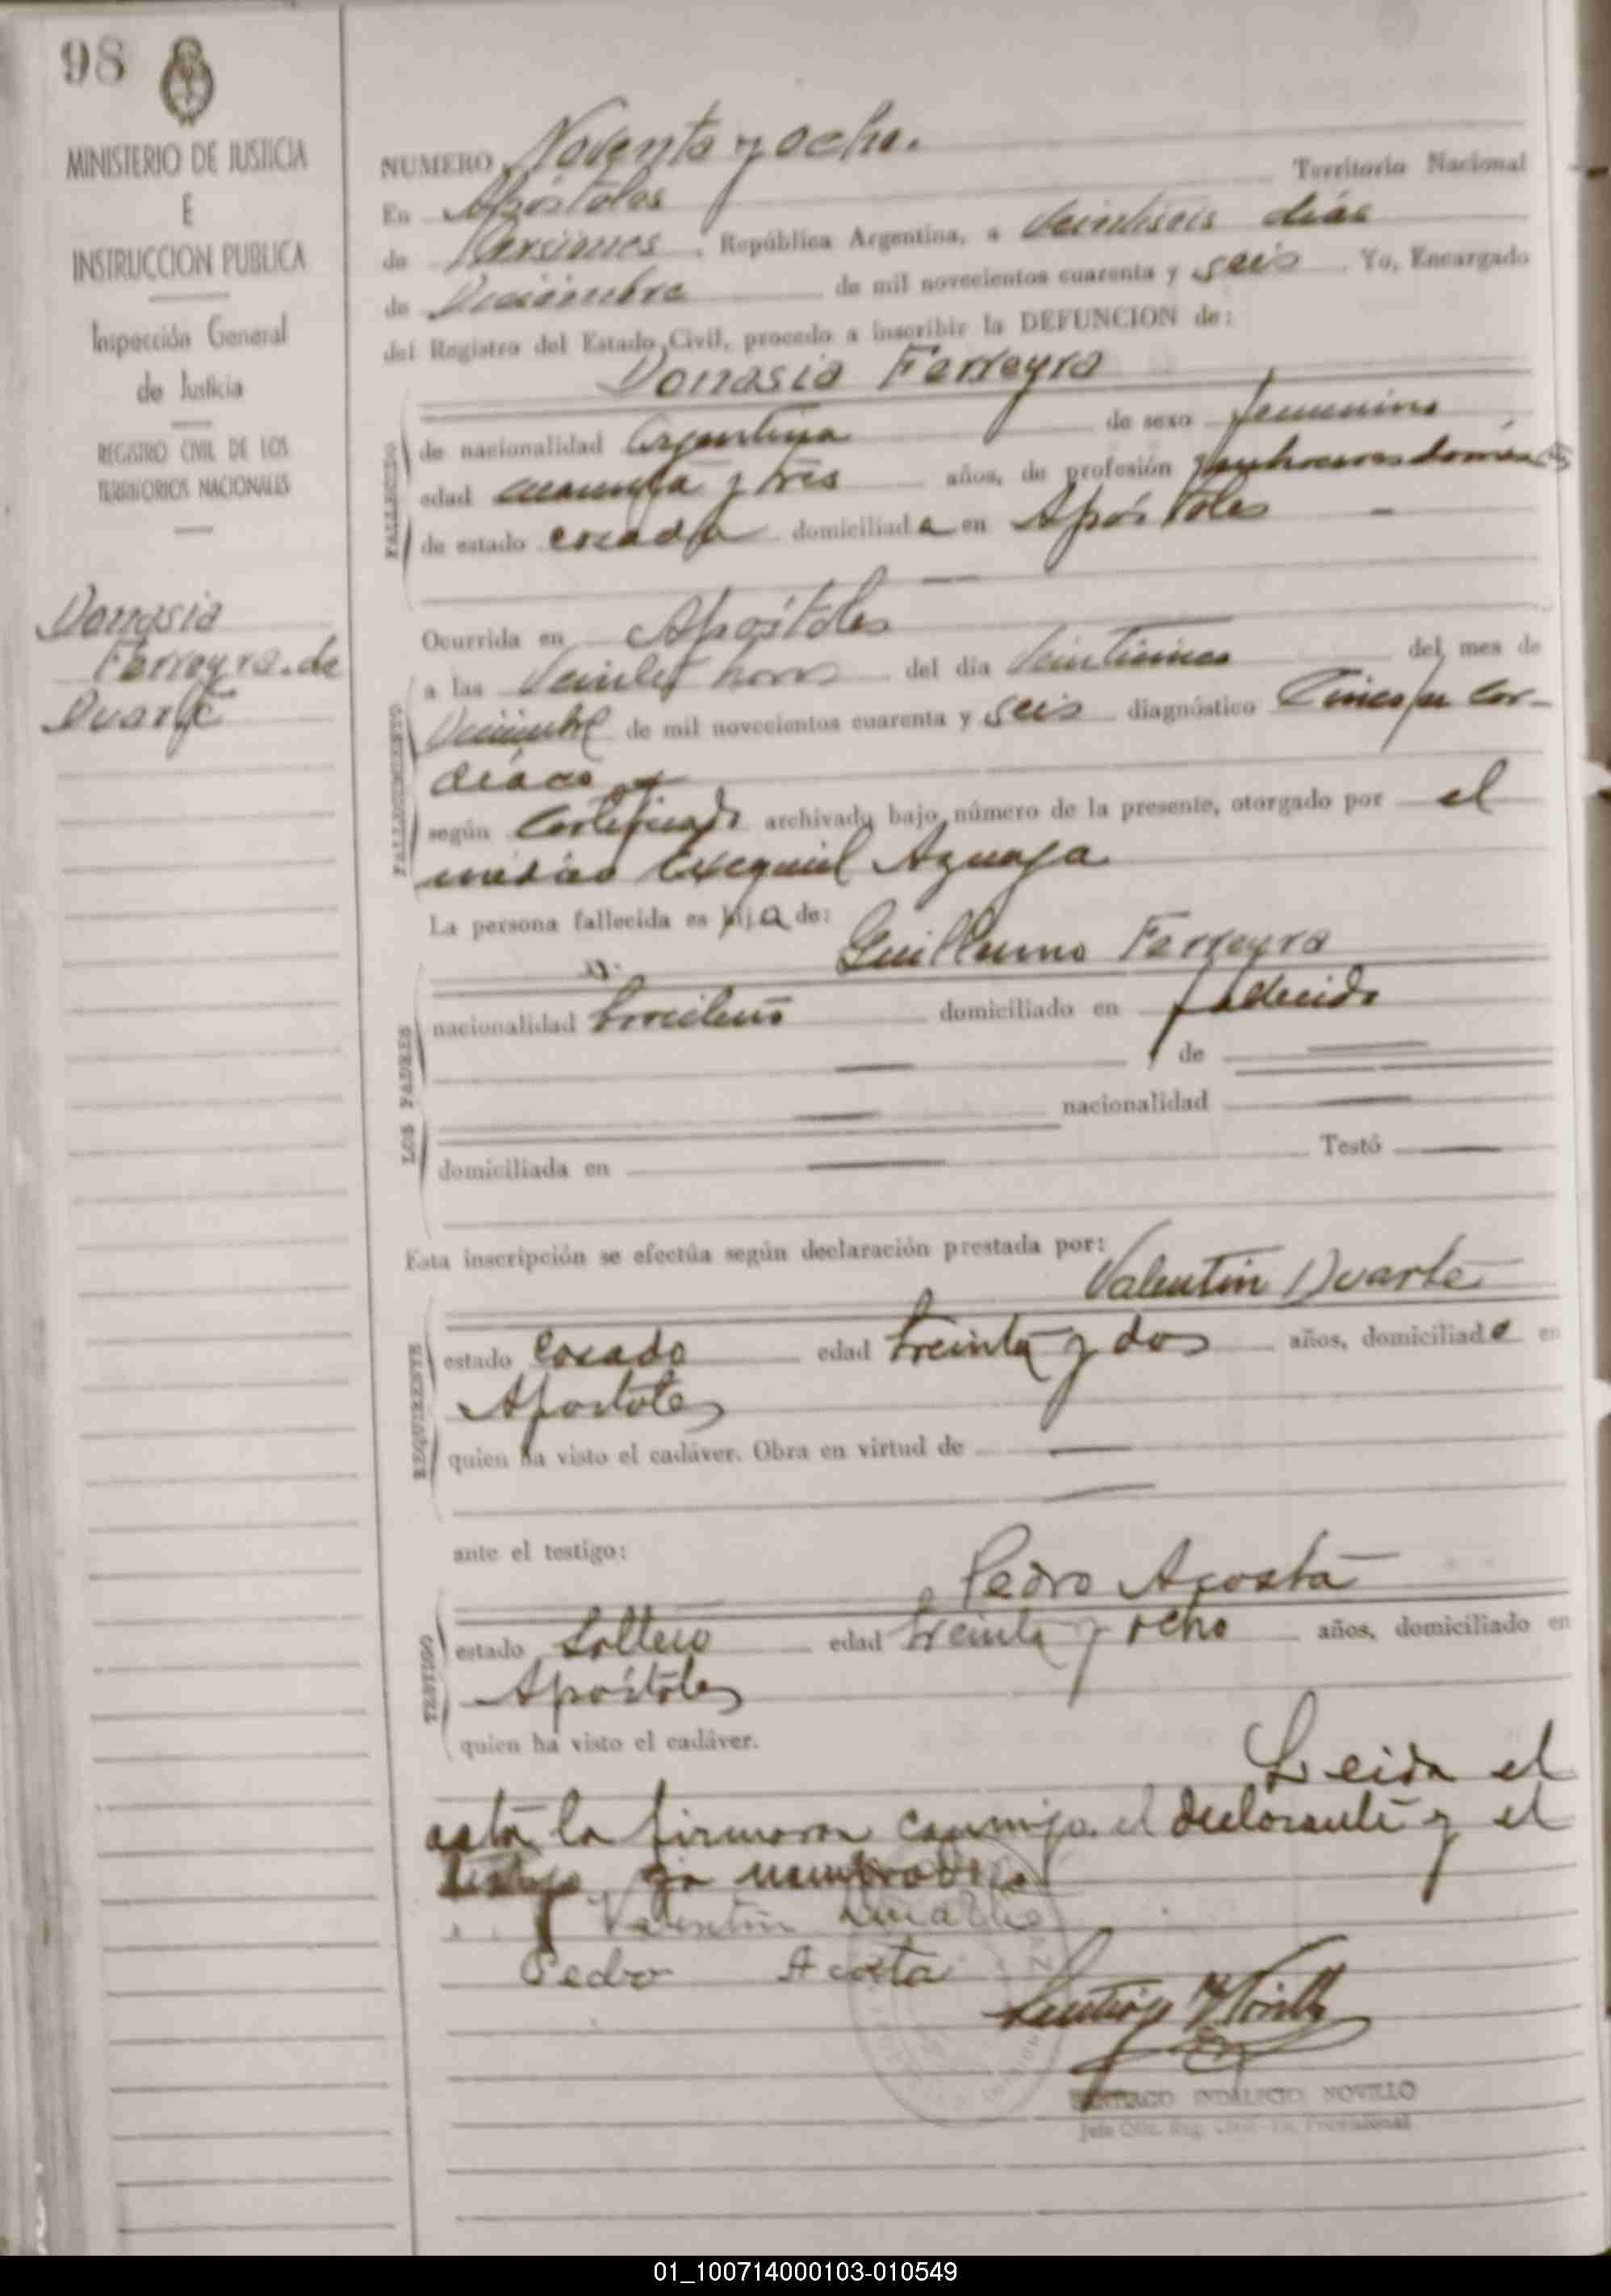 98
MINISTERIO DE JUSTICIA
E
INSTRUCCION PUBLICA
Inspección General
de Justicia
REGISTRO CIVIL DE LOS
TERRITORIOS NACIONALES
Donasia
Ferreyra de
Duarte
NUMERO Noventa y ocho.
En Apóstoles Territorio Nacional
de Misiones, República Argentina, a veintiseis dias
de Diciembre de mil novecientos cuarenta y seis. Yo, Encargado
del Registro del Estado Civil, procedo a inscribir la DEFUNCION de:
Donasia Ferreyra
FALLECIDO
de nacionalidad Argentina de sexo femenino
edad cuarenta y tres años, de profesión
de estado casada domiciliada en Apóstoles
FALLECIMIENTO
Ocurrida en Apóstoles
a las horas del día del mes de
Diciembre de mil novecientos cuarenta y seis diagnóstico Car-
diaco
según Certificado archivado bajo número de la presente, otorgado por el
médico Exequiel Azuaga
La persona fallecida es hija de:
LOS PADRES
Guillermo Ferreyra
nacionalidad brasileño domiciliado en fallecido
y de
nacionalidad
domiciliada en Testó
Esta inscripción se efectúa según declaración prestada por:
REQUIRENTE
Valentin Duarte
estado casado edad treinta y dos años, domiciliado en
Apostoles
quien ha visto el cadáver. Obra en virtud de
ante el testigo:
TESTIGO
Pedro Acosta
estado Soltero edad treinta y ocho años, domiciliado en
Apóstoles
quien ha visto el cadáver.
Leida el
acta la firmaron conmigo el declarante y el
testigo ya nombrados
Valentin Duarte
Pedro Acosta
SANTIAGO INDALECIO NOVILLO
01_100714000103-010549